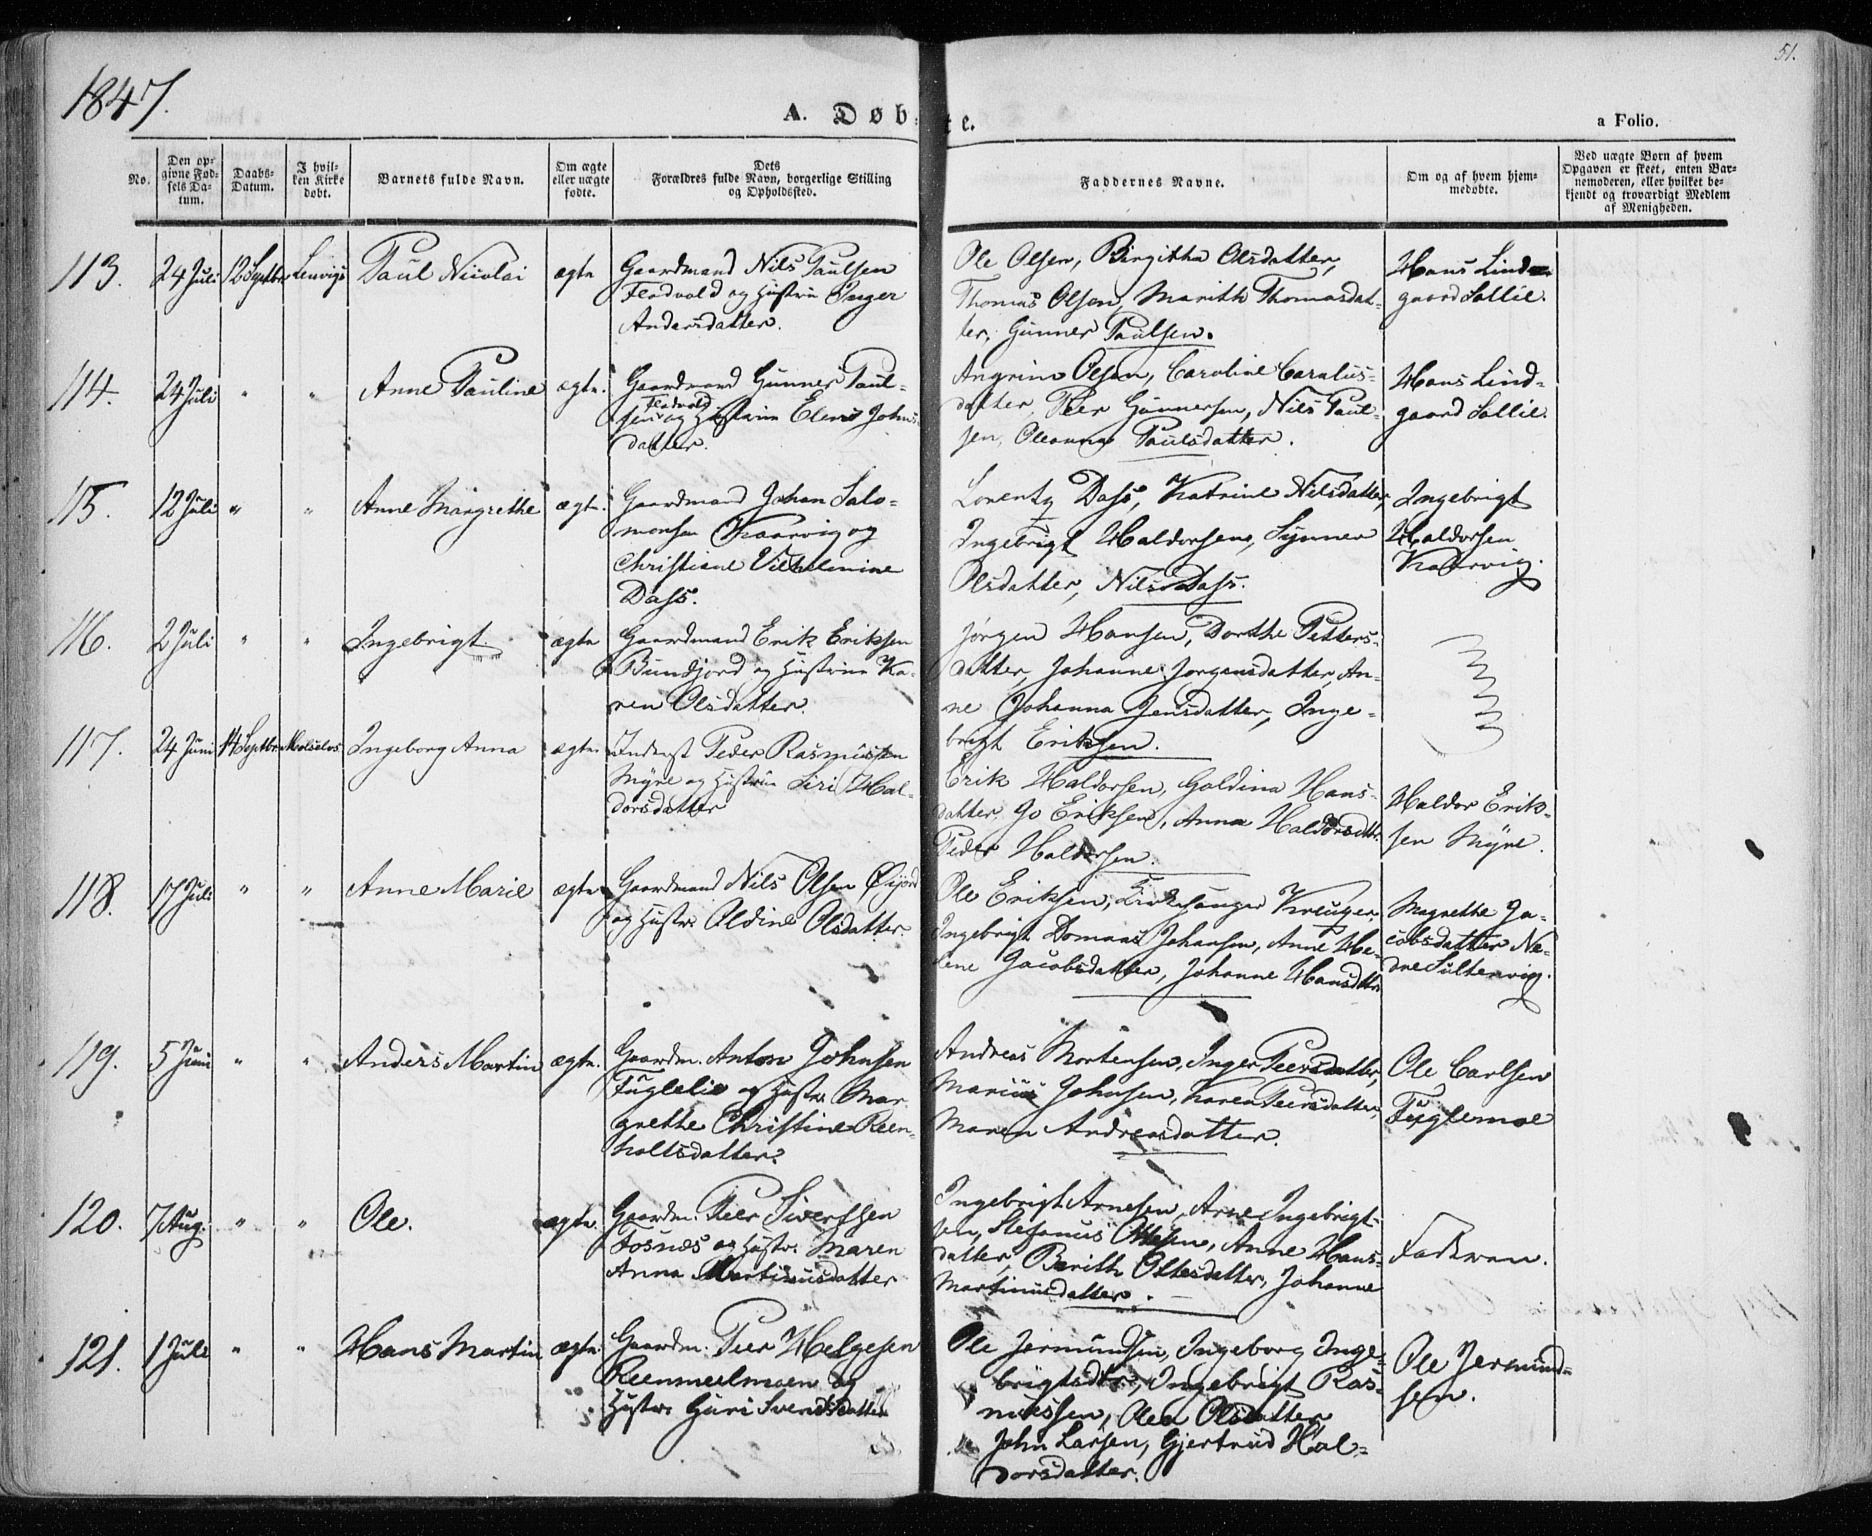 1847.
51.
A. Døbte.
a Folio.
No.
Den op-
givne Fød-
sels Da-
tum.
Daabs-
Datum.
I hvil-
ken Kirke
døbt.
Barnets fulde Navn.
Om ægte
eller uægte
fødte.
Dets
Forældres fulde Navn, borgerlige Stilling
og Opholdssted.
Faddernes Navne.
Om og af hvem hjem-
medøbte.
Ved uægte Børn af hvem
Opgaven er skeet, enten Bar-
nemoderen, eller hvilket be-
kjendt og troværdigt Medlem
af Menigheden.
113. 24 Juli 12 Septbr Lenvigs Paul Nicolai ægte
Gaardmand Nils Paulsen
Flodvold og Hustrue Inger
Andersdatter.
Ole Olsen, Birgitha Olsdatter,
Thomas Olsen, Marith Thomasdat-
ter, Gunner Paulsen.
Hans Lind-
gaard Sollie.
114. 24 Juli " " Anne Pauline ægte.
Gaardmand Gunner Paul-
Flodvold
sen og Hustrue Elen Johns-
datter.
Angrim Olsen, Caroline Carolus-
datter, Peer Gunnersen, Nils Paul-
sen, Oleanna Paulsdatter.
Hans Lind-
gaard Sollie.
115. 12 Juli " " Anne Margrethe ægte.
Gaardmand Johan Salo-
monsen Kaarvig og
Christiane Vilhelmine
Dass.
Lorentz Dass, Katrine Nilsdatter,
Ingebrigt Haldorsen, Synner
Olsdatter, Nils Dass.
Ingebrigt
Haldorsen
Kaarvig.
116. 2 Juli " " Ingebrigt ægte
Gaardmand Erik Eriksen
Bundfjord og Hustrue Ka-
ren Olsdatter.
Jörgen Hansen, Dorthe Petters-
datter, Johanne Jorgensdatter, An-
ne Johanna Jensdatter, Inge-
brigt Eriksen.
117. 24 Juni 14 Septbr Maalselvs Ingeborg Anna ægte
Inderst Peder Rasmussen
Myre og Hustrue Siri Hal-
dorsdatter
Erik Haldorsen, Goldina Hans-
datter, Jo Eriksen, Anna Haldorsdttr.
Peder Haldorsen.
Haldor Erik-
sen Myre.
118. 17 Juli " " Anne Marie ægte
Gaardmand Nils Olsen Øvjord
og Hustr. Oldine Olsdatter.
Ole Eriksen, Kirkesanger Kreuger,
Ingebrigt Domaas Johansen, Anne He-
lene Jacobsdatter, Johanne Hansdttr.
Magrethe Ja-
cobsdatter Ne-
dre Sultenvig.
119. 5 Juni " " Anders Martin ægte.
Gaardm. Anton Johnsen
Fuglelie og Hustr. Mar-
grethe Christine Reen-
holtsdatter.
Andreas Mortensen, Inger Peersdatter,
Marius Johnsen, Karen Peersdatter,
Maren Andreasdatter.
Ole Carlsen
Fuglemoe
120. 7 Aug. " " Ole. ægte.
Gaardm. Peer Sivertsen
Fosnæs og Hustr. Maren
Anna Martinusdatter
Ingebrigt Arnesen, Arne Ingebrigt-
sen, Stefanus Ottesen, Anne Hans-
datter, Berith Ottesdatter, Johanne
Martinusdatter.
Faderen.
121. 1 Juli " " Hans Martin ægte.
Gaardm. Peer Helgesen
Reenmeelmoen og
Hustr. Guri Svendsdatter
Ole Jermundsen, Ingeborg Inge-
brigtsdtr, Ingebrigt Ras-
mussen, Olea Olsdatter,
John Larsen, Gjertrud Hal-
dorsdatter.
Ole Jermund-
sen.